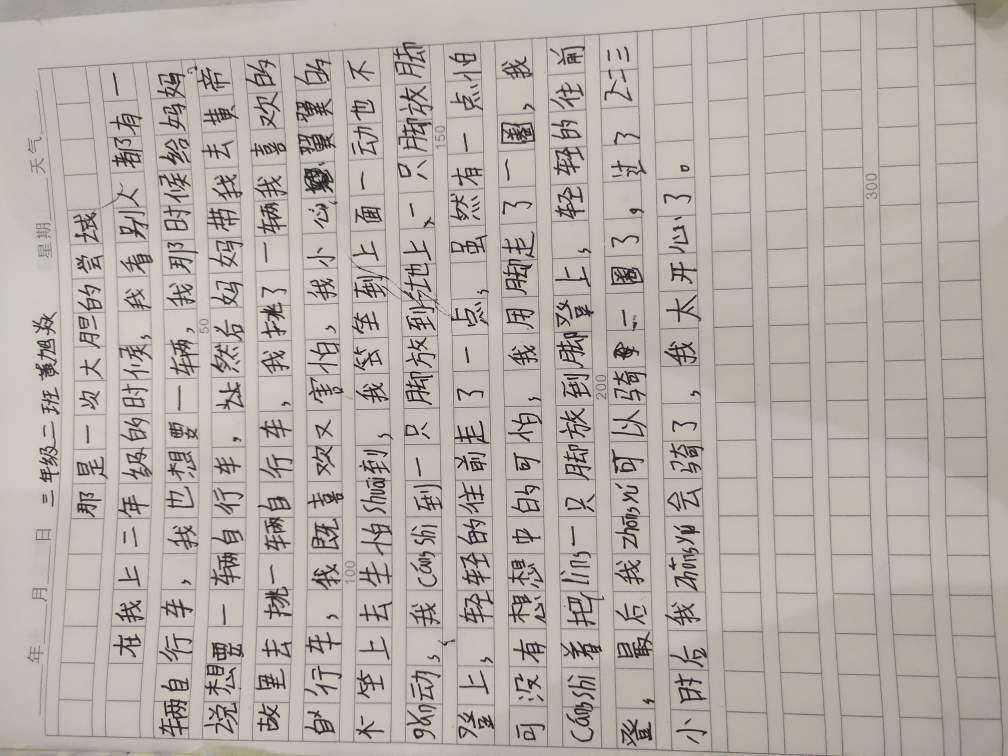 年 月 日 三年级二班 黄旭姣 星期 天气
那是一次大胆的尝域
在我上二年级的时候，我看别人都有一
辆自行车，我也想要一辆，我那时候给妈妈
说想要一辆自行车，然后妈妈带我去黄帝
故里去挑一辆自行车，我挑了一辆我喜欢的
自行车，我既喜欢又害怕，我小心翼翼的
坐上去生怕shuāi到，我坐到上面一动也不
gǎn动，我cángshì到一只脚放到地上、一只脚放脚
登上，轻轻的往前走了一点，虽然有一点怕
可没有想想中的可怕，我用脚走了一圈，我
cángshì着把lìng一只脚放到脚登上，轻轻的往前
登，最后我zhōngyú可以骑一圈了，过了2-3
小时后我zhōngyú会骑了，我太开心了。
50
100
150
200
300